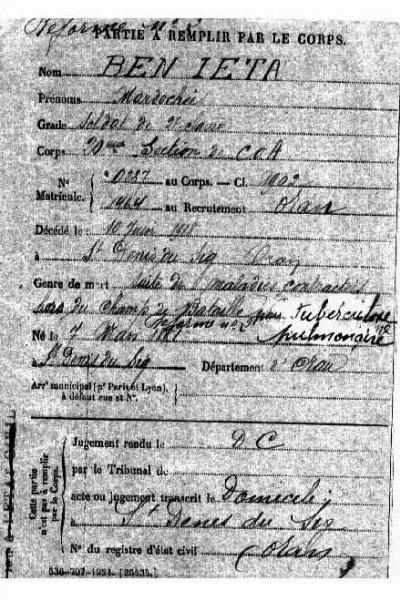 Réformé
PARTIE À REMPLIR PAR LE CORPS.
Nom BEN IETA
Prénoms Mardochée
Grade Soldat de 2e classe
Corps 20me Section de C.O.A
N° Matricule. 0287 au Corps. — Cl. 1902
1464 au Recrutement Oran
Décédé le 10 Juin 1918
à St Denis du Sig Oran
Genre de mort suite de maladies contractées
hors du champ de Bataille tuberculose
Réformé n° pulmonaire
Né le 7 Mars
à St Denis du Sig Département d'Oran
Arrt municipal (pr Paris et Lyon), à défaut rue et N°.
Cette partie n'est pas à remplir par le Corps.
Jugement rendu le D C
par le Tribunal de
acte ou jugement transcrit le Domicile
à St Denis du Sig
N° du registre d'état civil (Oran)